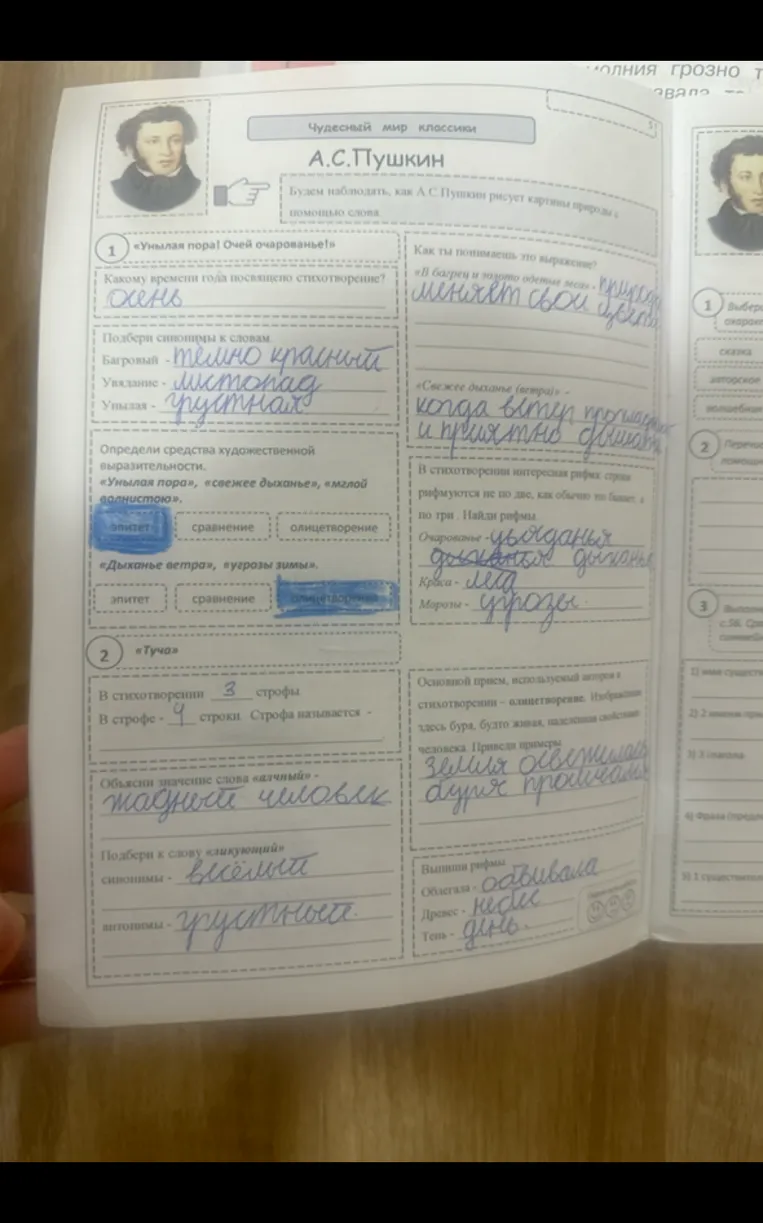 молния грозно т
Чудесный мир классики
5
А.С.Пушкин
Будем наблюдать, как А.С.Пушкин рисует картины природы с
помощью слова.
1
«Унылая пора! Очей очарованье!»
Какому времени года посвящено стихотворение?
осень
Подбери синонимы к словам
Багровый - тёмно красный
Увядание - листопад
Унылая - грустная
Определи средства художественной
выразительности.
«Унылая пора», «свежее дыханье», «мглой
волнистою».
эпитет сравнение олицетворение
«Дыханье ветра», «угрозы зимы».
эпитет сравнение олицетворение
2
«Туча»
В стихотворении 3 строфы.
В строфе - 4 строки. Строфа называется -
Объясни значение слова «алчный» -
жадный человек
Подбери к слову «ликующий»
синонимы - весёлый
антонимы - грустный.
Как ты понимаешь это выражение?
«В багрец и золото одетые леса» - природа
меняет свои цвета
«Свежее дыханье (ветра)» -
когда ветер
и приятно дышать
В стихотворении интересная рифма: строки
рифмуются не по две, как обычно это бывает, а
по три. Найди рифмы.
Очарованье - увяданья
дыханья
Краса - леса
Морозы - угрозы.
Основной прием, используемый автором в
стихотворении – олицетворение. Изображенная
здесь буря, будто живая, наделенная свойствами
человека. Приведи примеры.
земля освежилась
буря промчалась
Выпиши рифмы.
Облегала - обвивала
Древес - небес
Тень - день.
1
Выбери
сказка
авторское
волшебная
2
3
Выполни
с.56.
1) имя существ
2) 2 имени при
3) 3 глагола
4) Фраза (предло
5) 1 существител